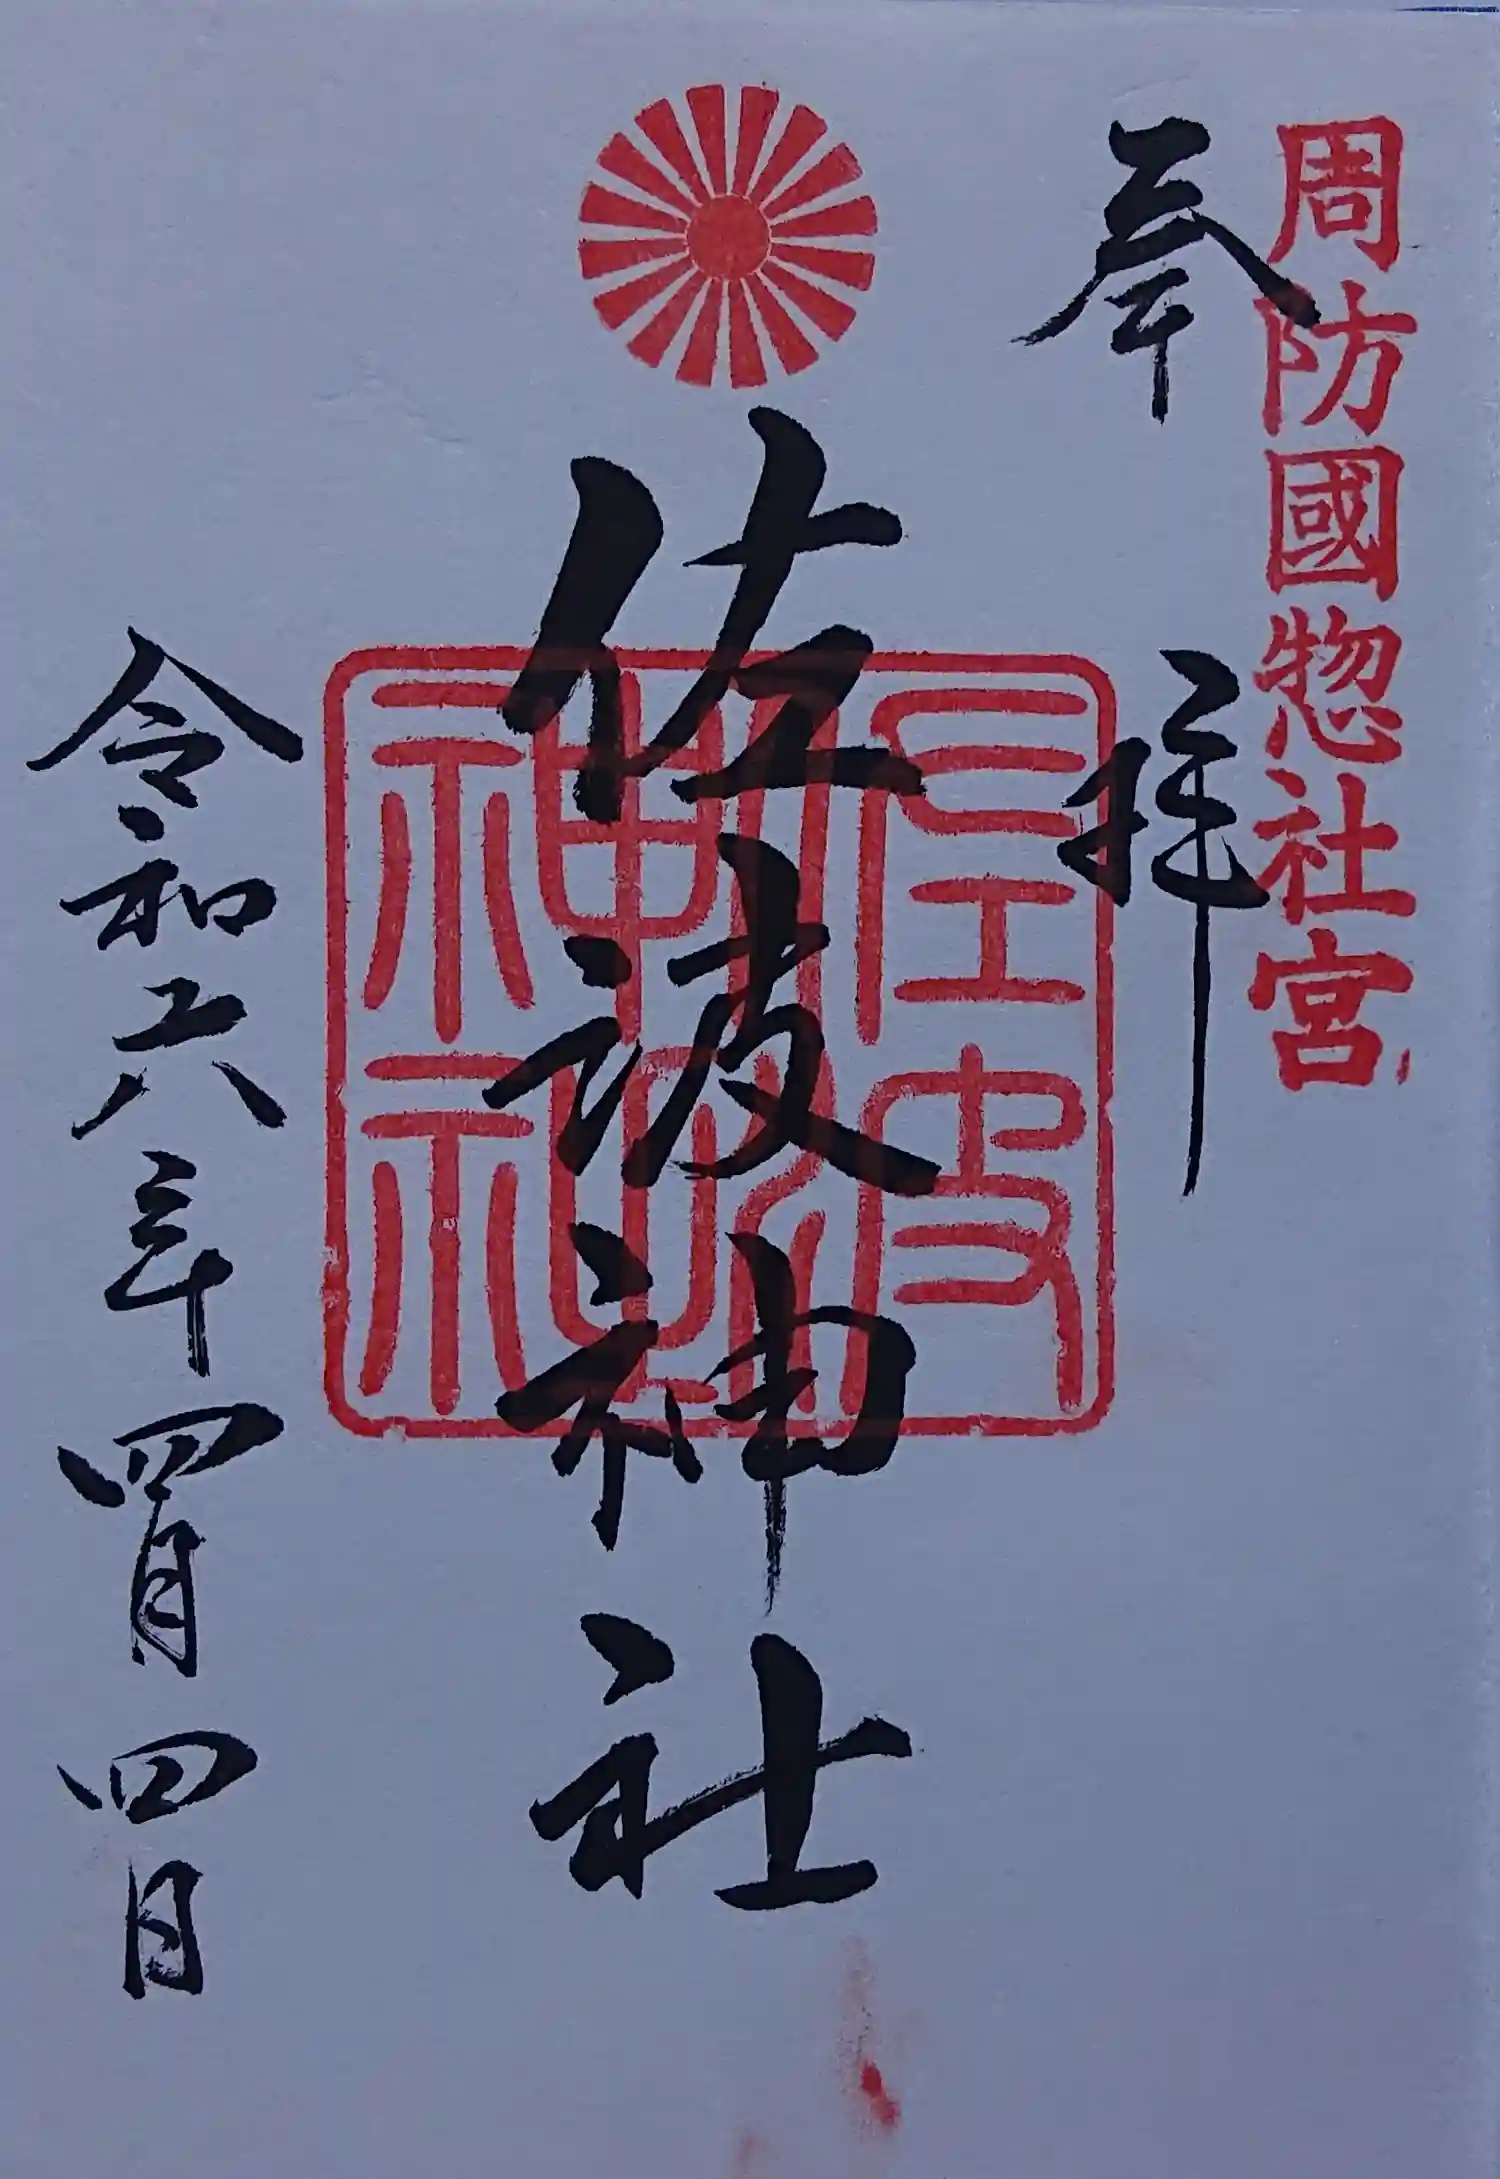 周防國惣社宮
奉拝
佐波神社
佐波神社神印
令和六年四月四日